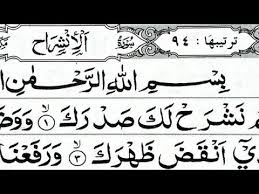 ترتيبها: ٩٤ سُوْرَةُ اَلْاِنْشِرَاح
بِسْمِ اللهِ الرَّحْمٰنِ
نَشْرَحْ لَكَ صَدْرَكَ ۝١
اَنْقَضَ ظَهْرَكَ ۝٣ وَرَفَعْنَا